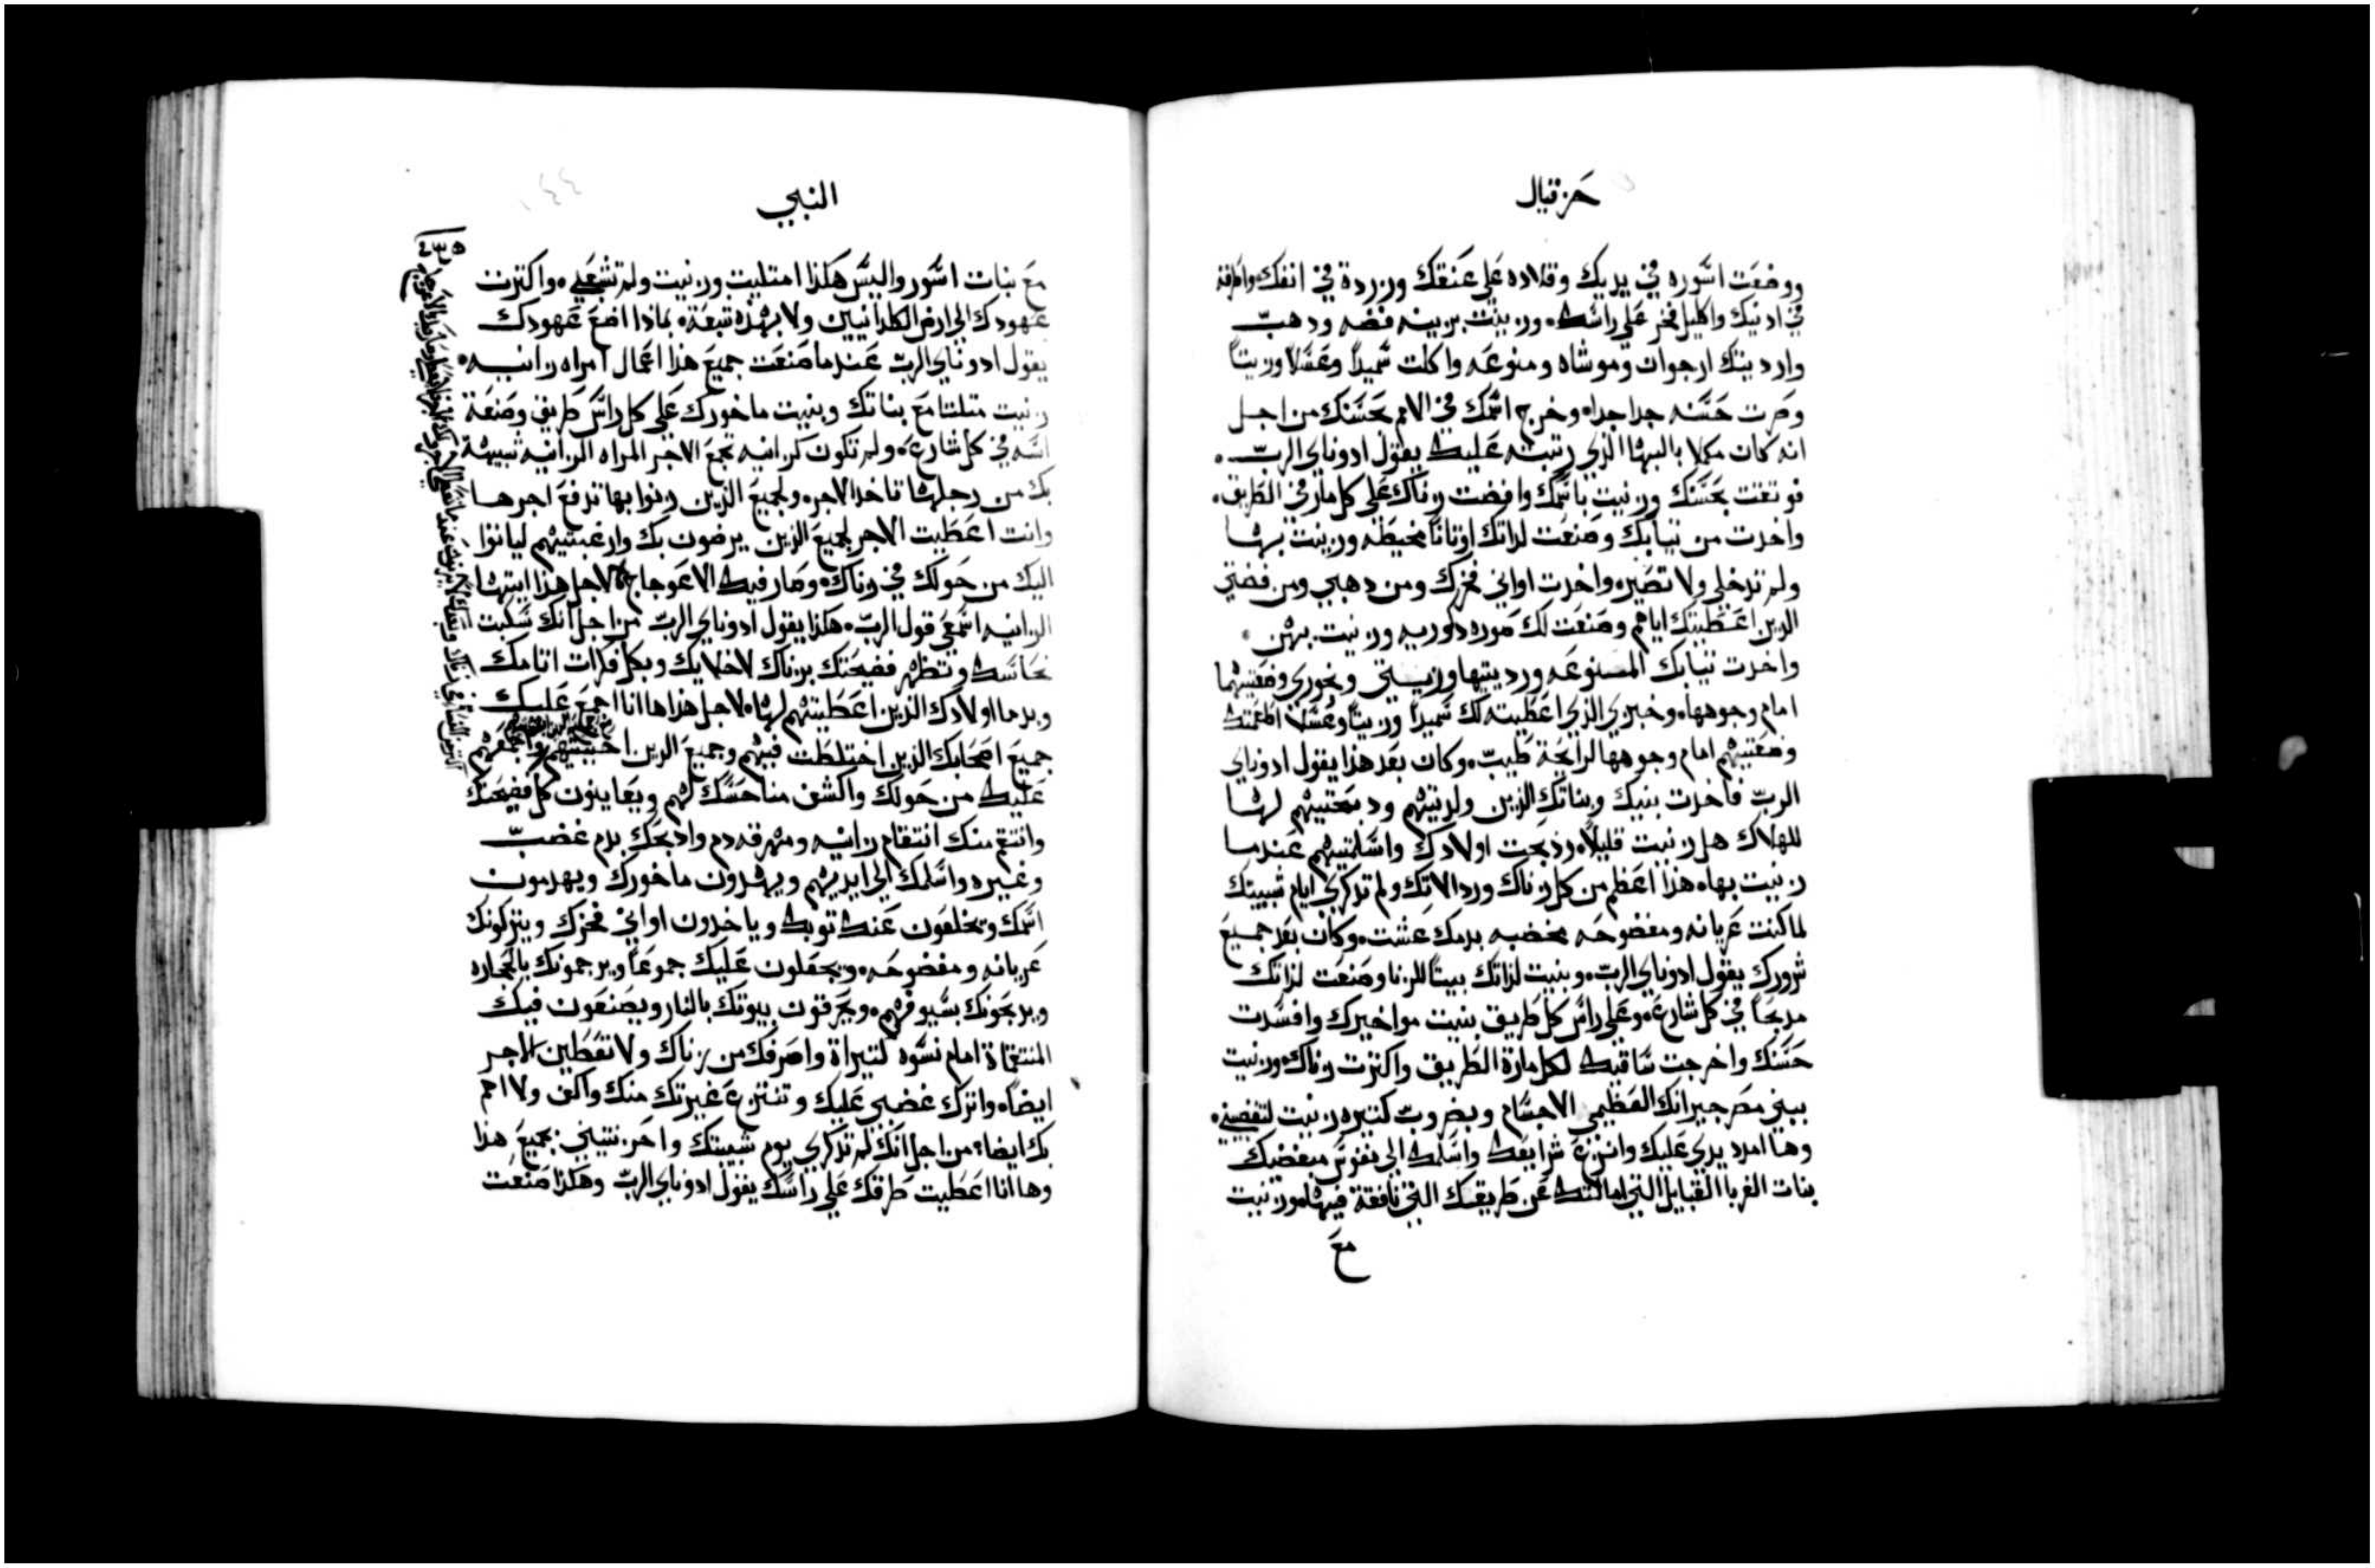 حزقيال
ووضعت اسوره في يديك وقلاده على عنقك وزردة في انفك واطرفه
في ادنيك واكليل فخر على راسك. وزينت بزينه فضه ودهب
وارديتك ارجوان وموشاه ومنوعه واكلت سميدًا وعسلا وزيتًا
وصرت حسنه جدا جدا. وخرج اسمك في الامم بحسنك من اجل
انه كان مكملا بالبها الذي رتبته عليك يقول ادوناي الرب.
فوتقت بحسنك وزنيت باسمك وافضت زناك على كل مار في الطريق.
واخدت من تيابك وصنعت لذاتك اوتانا مخيطه وزنيت بها
ولم تدخلي ولا تصير. واخدت اواني فخرك ومن دهبي ومن فضتي
الذين اعطيتك اياهم وصنعت لك صوره دكوريه وزنيت بهن.
واخدت تيابك المسنوعه ورديتها وزيتي وبخوري وضعتيهما
امام وجوهها. وخبزي الذي اعطيته لك سميدًا وزيتًا وعسلا اطعمتك
وضعتيهم امام وجوهها لرايحة طيب. وكان بعد هذا يقول ادوناي
الرب فاخدت بنيك وبناتك الذين ولدتيهم ودبحتيهم لها
للهلاك هل زنيت قليلا. ودبحت اولادك واسلمتيهم عندما
زنيت بها. هذا اعظم من كل زناك وردالاتك ولم تدكري ايام شبيبتك
لما كنت عريانه ومفضوحه مخضبه بدمك عشت. وكان بعد جميع
شرورك يقول ادوناي الرب. وبنيت لذاتك بيتًا للزنا وصنعت لذاتك
مدبحًا في كل شارع. وعلى راس كل طريق بنيت مواخيرك وافسدت
حسنك واخرجت ساقيك لكل مارة الطريق واكترت زناك. وزنيت
ببني مصر جيرانك العظيمي الاجسام وبضروب كتيره زنيت لتغضبيني.
وها امد يدي عليك وانزع شرايعك واسلمك الى نفوس مبغضيك
بنات الغربا القبايل التي امالتك عن طريقك التي نافقة فيها. وزنيت
مع
النبي
مع بنات اسور واليس هكذا امتليت وزنيت ولم تشبعي. واكترت
عهودك الى ارض الكلدانيين ولا بهذه تبعة. بماذا اضع عهودك
يقول ادوناي الرب عندما صنعت جميع هذا اعمال امراه زانيه.
زنيت متلتا مع بناتك وبنيت ماخورك على كل راس طريق وصنعة
اسه في كل شارع. ولم تكون كزانيه تجمع الاجر المراه الزانيه شبيهة
بك من رجلها تاخد الاجر. ولجميع الذين زنوا بها تدفع اجرها
وانت اعطيت الاجر لجميع الذين يرضون بك وارغبتيهم لياتوا
اليك من حولك في زناك. وصار فيك الاعوجاج. لاجل هذا ايتها
الزانيه اسمعي قول الرب. هكذا يقول ادوناي الرب من اجل انك سكبت
نحاسك وتظهر فضيحتك بزناك لاخلايك وبكل فكرات اتامك
وبدما اولادك الذين اعطيتيهم لها. لاجل هذا ها انا اجمع عليك
جميع اصحابك الذين اختلطت فيهم وجميع الذين احببتيهم واجمعهم
عليك من حولك واكشف مناحسك لهم ويعاينون كل فضيحتك
وانتقم منك انتقام زانيه ومهرقه دم وادبحك بدم غضب
وغيره واسلمك الى ايديهم ويهدون ماخورك ويهدمون
اسمك ويخلعون عنك توبك وياخدون اواني فخرك ويتركونك
عريانه ومفضوحه. ويجعلون عليك جموعًا ويرجمونك بالحجاره
ويدبحونك بسيوفهم. ويحرقون بيوتك بالنار ويصنعون فيك
المنتقماة امام نسوه كتيراة واصرفك من زناك ولا تعطين الاجر
ايضًا. واترك غضبي عليك وتنتزع غيرتك منك واكف ولا اهم
بك ايضا. من اجل انك لم تدكري يوم شبيبتك واحزنتيني بجميع هذا
وها انا اعطيت طرقك على راسك يقول ادوناي الرب وهكذا صنعت